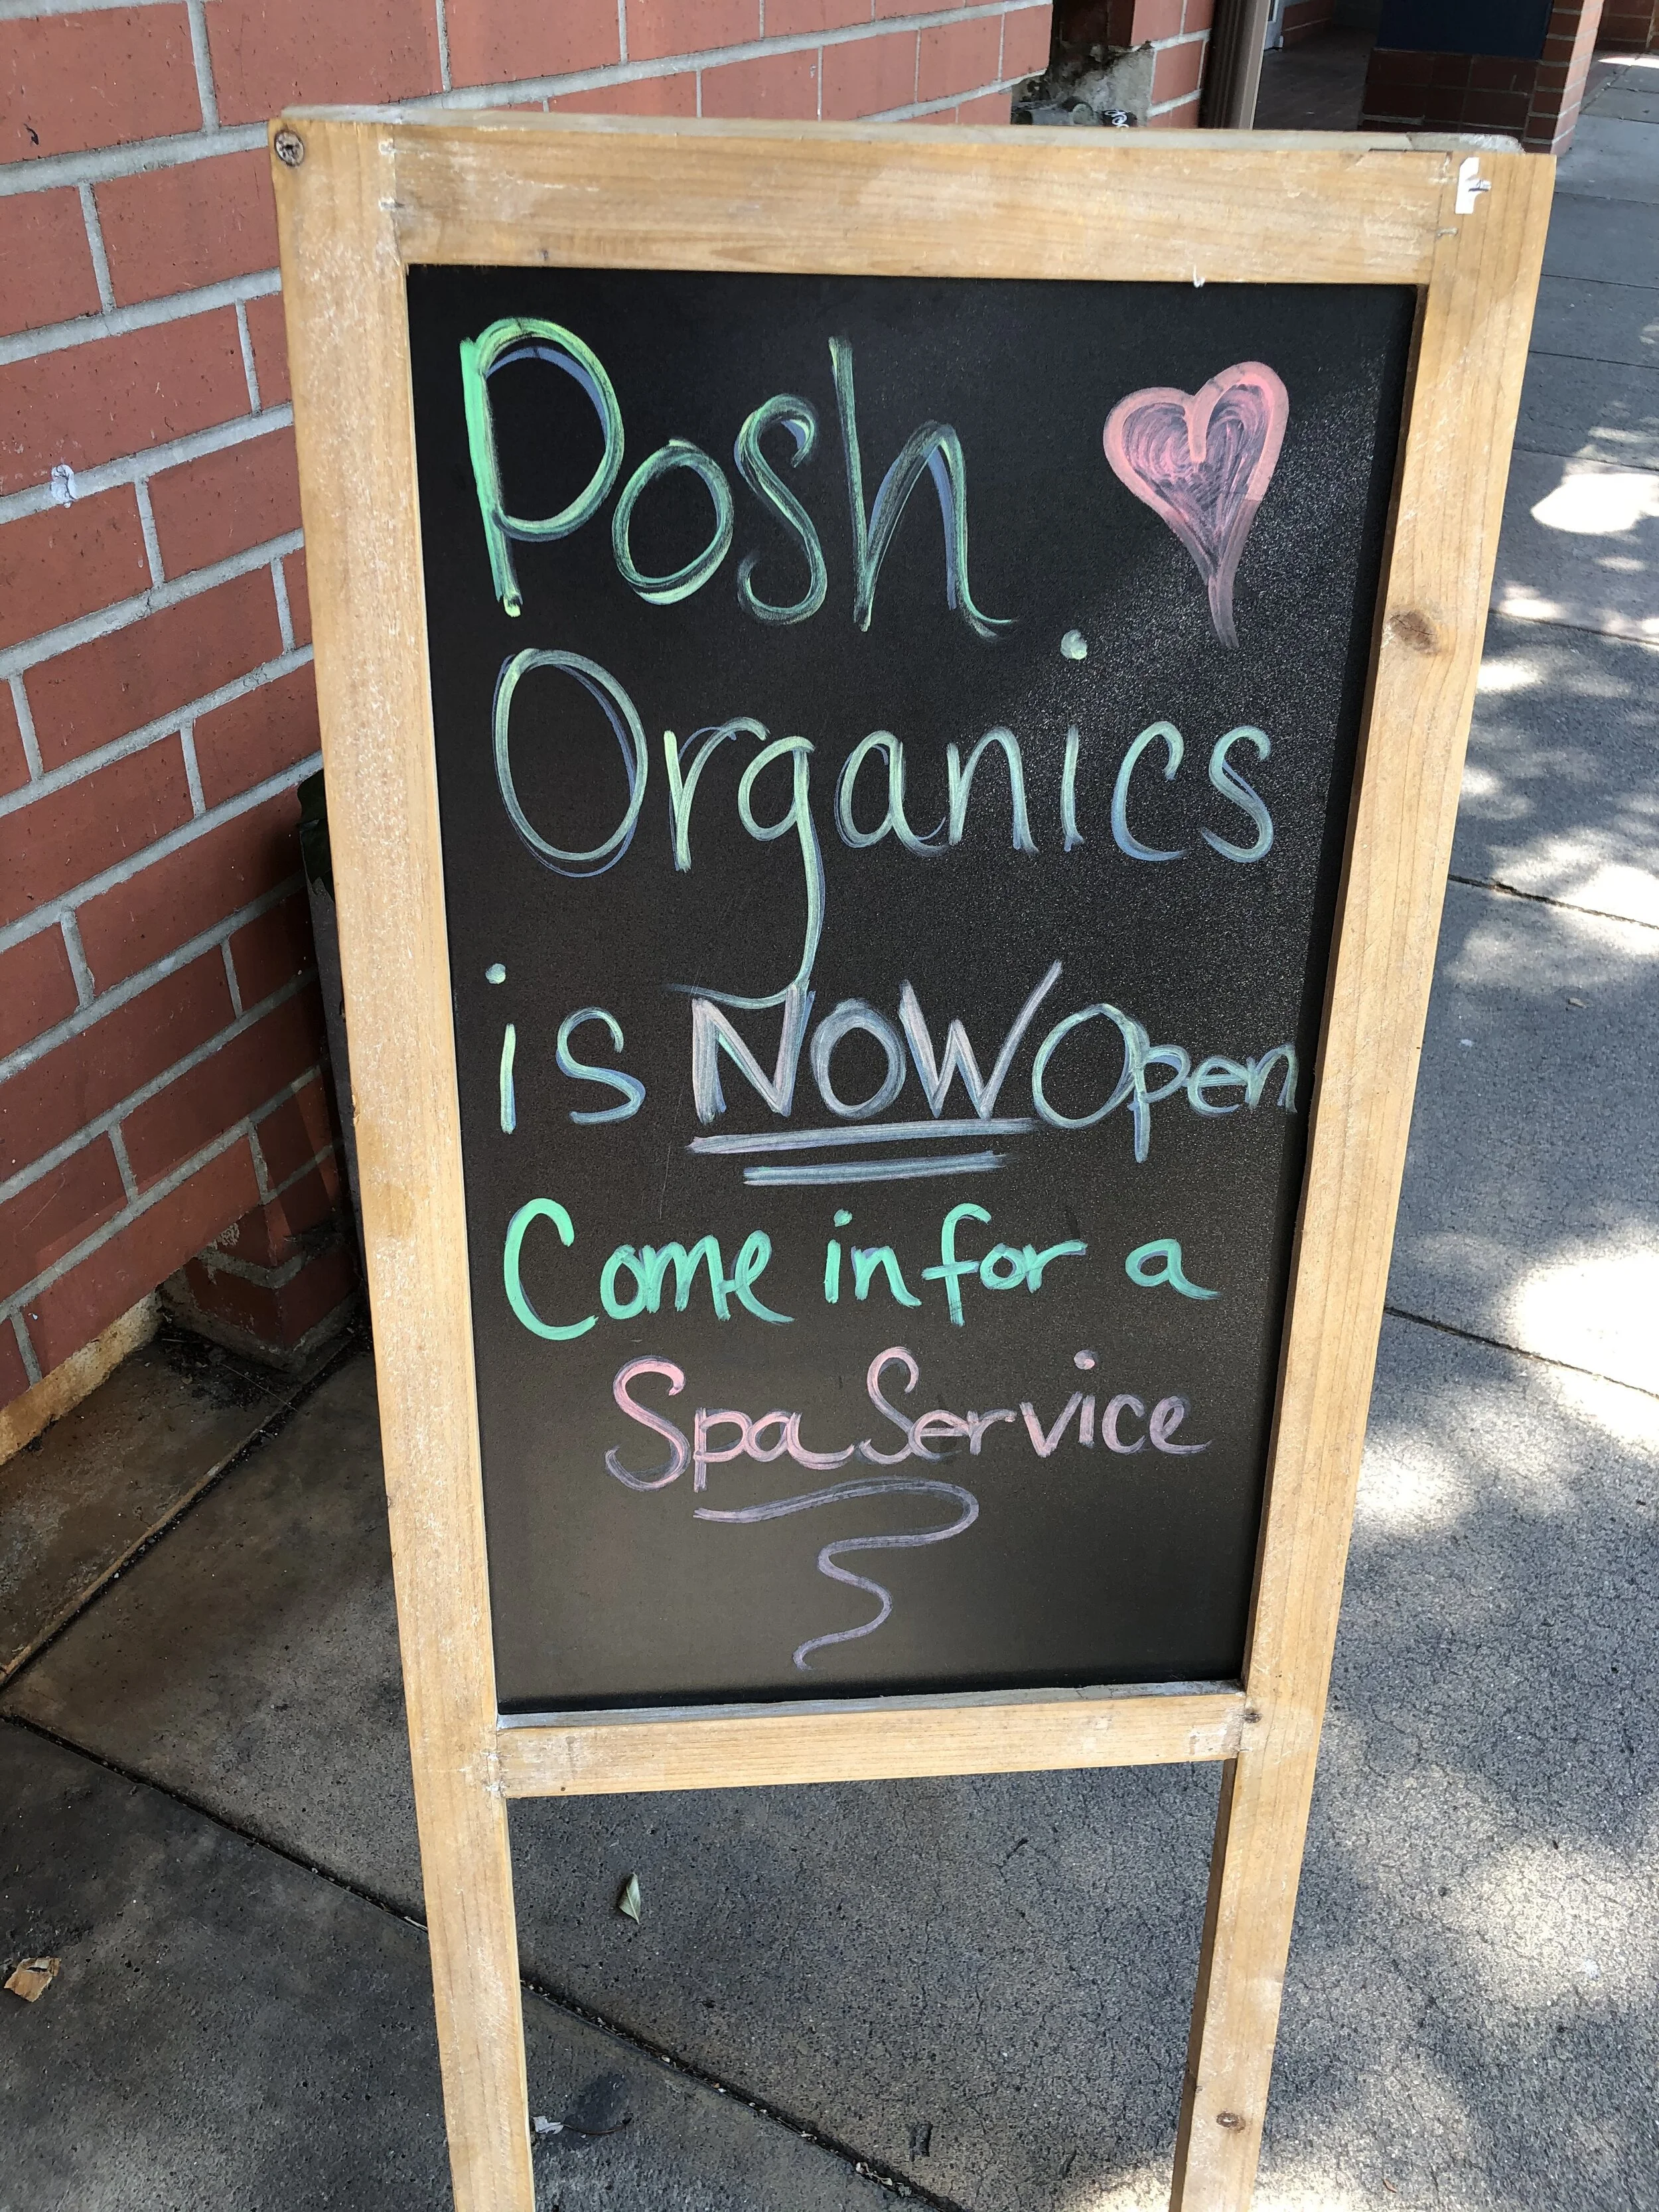 Posh
Organics
is NOW Open
Come in for a
Spa Service